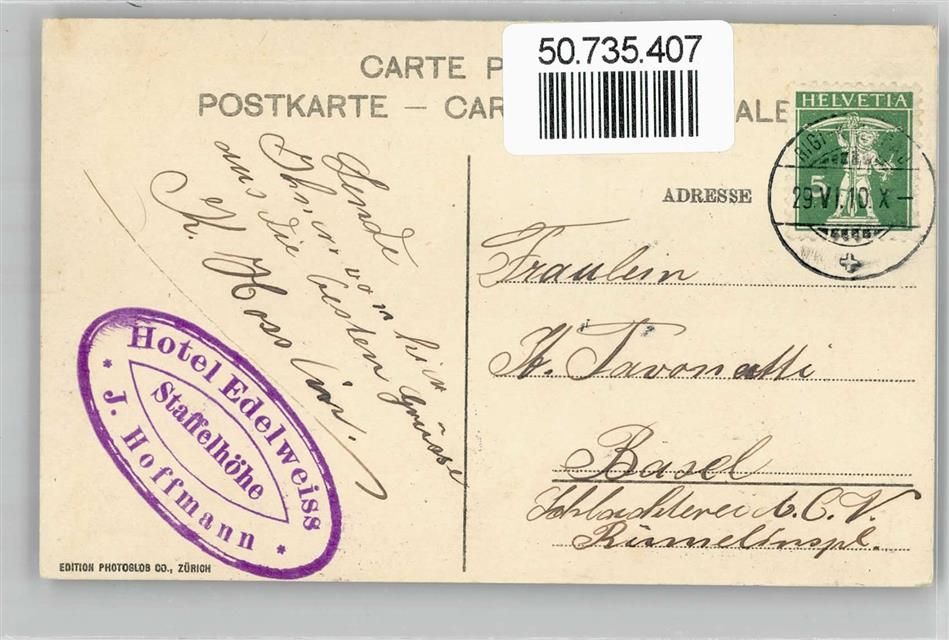 50.735.407
CARTE P
POSTKARTE – CAR ALE
HELVETIA
5
RIGI
29.VI.10.X–
ADRESSE
Sende
Ihnen von hier
aus die besten Grüsse
K. Hosslin.
Fraulein
H. Tavonatti
Basel
Schlachterei A.C.V.
Rümelinspl.
Hotel Edelweiss
Staffelhöhe
* J. Hoffmann *
EDITION PHOTOGLOB CO., ZÜRICH